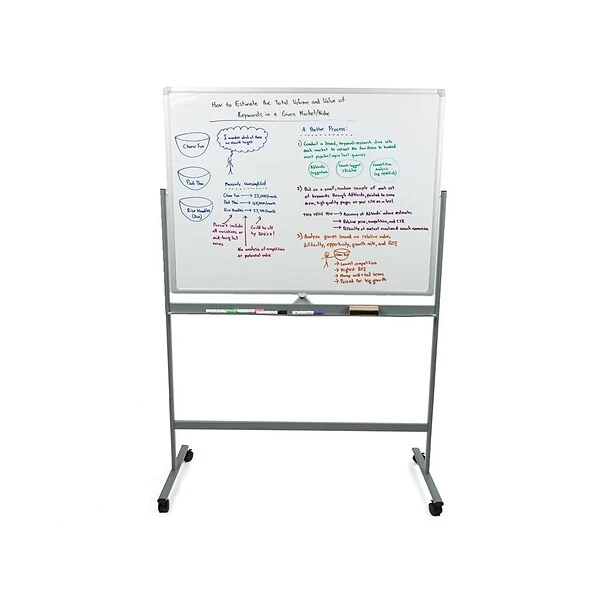 How to Estimate the Total Volume and Value of
Keywords in a Given Market/Niche
Chow Fun
Pad Thai
Rice Noodles
I wonder which of these
we should target
Massively Oversimplified!
Chow Fun → 22,000/month
Pad Thai →
Rice Noodles → 27,100/month
Doesn't include
all variations or
mid-long tail
terms
Could be off
by 200%!
No analysis of competition
or potential value
A Better Process:
1) Conduct a broad, keyword-research dive into
each market to extract the few dozen to hundred
most popular/important queries
AdWords
Suggestions
Search Suggest
+ Related
Competitive
Analysis
2) Bid on a small, random sample of each set
of keywords through AdWords, pointed to some
new, high quality pages on your site as a test.
THIS GIVES YOU → Accuracy of AdWords' volume estimates
→ Relative price, competition, and CTR
→ Difficulty of content creation & search conversion
3) Analyze groups based on relative value,
difficulty, opportunity, growth rate, and ROI
Chow Fun
→ Lowest competition
→ Highest ROI
→ Many mid + tail terms
→ Poised for big growth